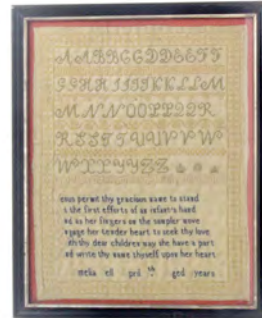 A A B B C C D D E E F F
G G H H I I J J K K L L M
M N N O O P P Q Q R
R S S T T U U V V W
W X X Y Y Z Z
esus permit thy gracious name to stand
s the first efforts of an infant's hand
nd as her fingers on the sampler move
ngage her tender heart to seek thy love
ith thy dear children may she have a part
nd write thy name thyself upon her heart
melia ell pril ged years